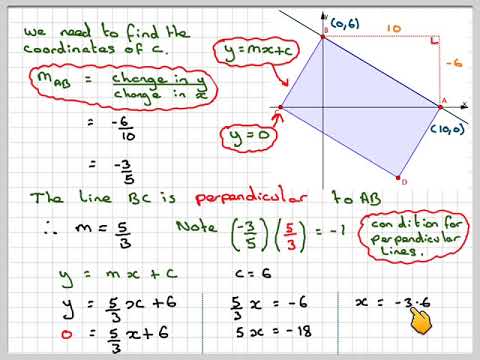 we need to find the
coordinates of c.
m AB = change in y
change in x
= -6
10
= -3
5
y = mx + c
y = 0
y
(0,6)
B
10
L
-6
A
x
(10,0)
C
D
The line BC is perpendicular to AB
∴ m = 5/3 Note (-3/5)(5/3) = -1
condition for
perpendicular
lines.
y = mx + c c = 6
y = 5/3 x + 6 5/3 x = -6 x = -3.6
0 = 5/3 x + 6 5x = -18